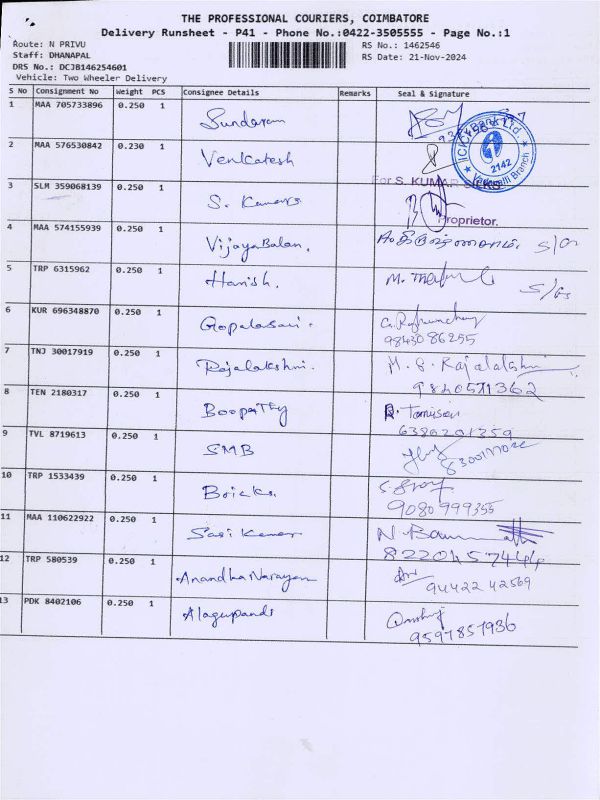 THE PROFESSIONAL COURIERS, COIMBATORE
Delivery Runsheet - P41 - Phone No.:0422-3505555 - Page No.:1
Route: N PRIVU
RS No.: 1462546
Staff: DHANAPAL
RS Date: 21-Nov-2024
DRS No.: DCJB146254601
Vehicle: Two Wheeler Delivery
S No Consignment No Weight PCS Consignee Details Remarks Seal & Signature
1 MAA 705733896 0.250 1 Sundaram
ICICI Bank Ltd
2142
Branch
2 MAA 576530842 0.230 1 Venkatesh
For S. KUMAR
3 SLM 359068139 0.250 1 S. Kumara
Proprietor.
4 MAA 574155939 0.250 1 VijayaBalan. S/o
5 TRP 6315962 0.250 1 Harish. M.
6 KUR 696348870 0.250 1 Gopalasari.
9843086255
7 TNJ 30017919 0.250 1 Rajalakshmi. M. S. Rajalakshmi
9840571362
8 TEN 2180317 0.250 1 Boopathy
6380201359
9 TVL 8719613 0.250 1 SMB
10 TRP 1533439 0.250 1 Bricks.
9080999355
11 MAA 110622922 0.250 1 Sasi Kumar N.
8220457444
12 TRP 580539 0.250 1 AnandhaNarayan
9442242569
13 PDK 8402106 0.250 1 Alagupandi
9597851936